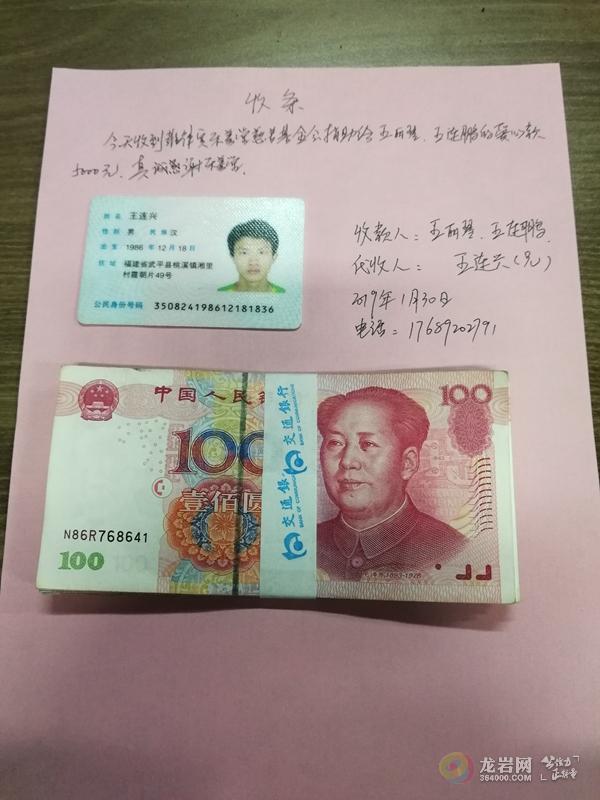 收条
今天收到菲律宾乐善堂慈善基金会捐助给王丽琴、王连鹏的爱心款
5000元,真诚感谢乐善堂.
姓名 王连兴
性别 男 民族 汉
出生 1986 年 12 月 18 日
住址 福建省武平县桃溪镇湘里
村霞朝片49号
公民身份号码 350824198612181836
收款人:王丽琴、王连鹏
代收人: 王连兴(兄)
2019年1月30日
电话:17689202791
中国人民银
100
100
壹佰圆
N86R768641
100
交通銀行
BANK OF COMMUNICATIONS
交通銀行
BANK OF COMMUNICATIONS
毛泽东 1893-1976
龙岩网
364000.com